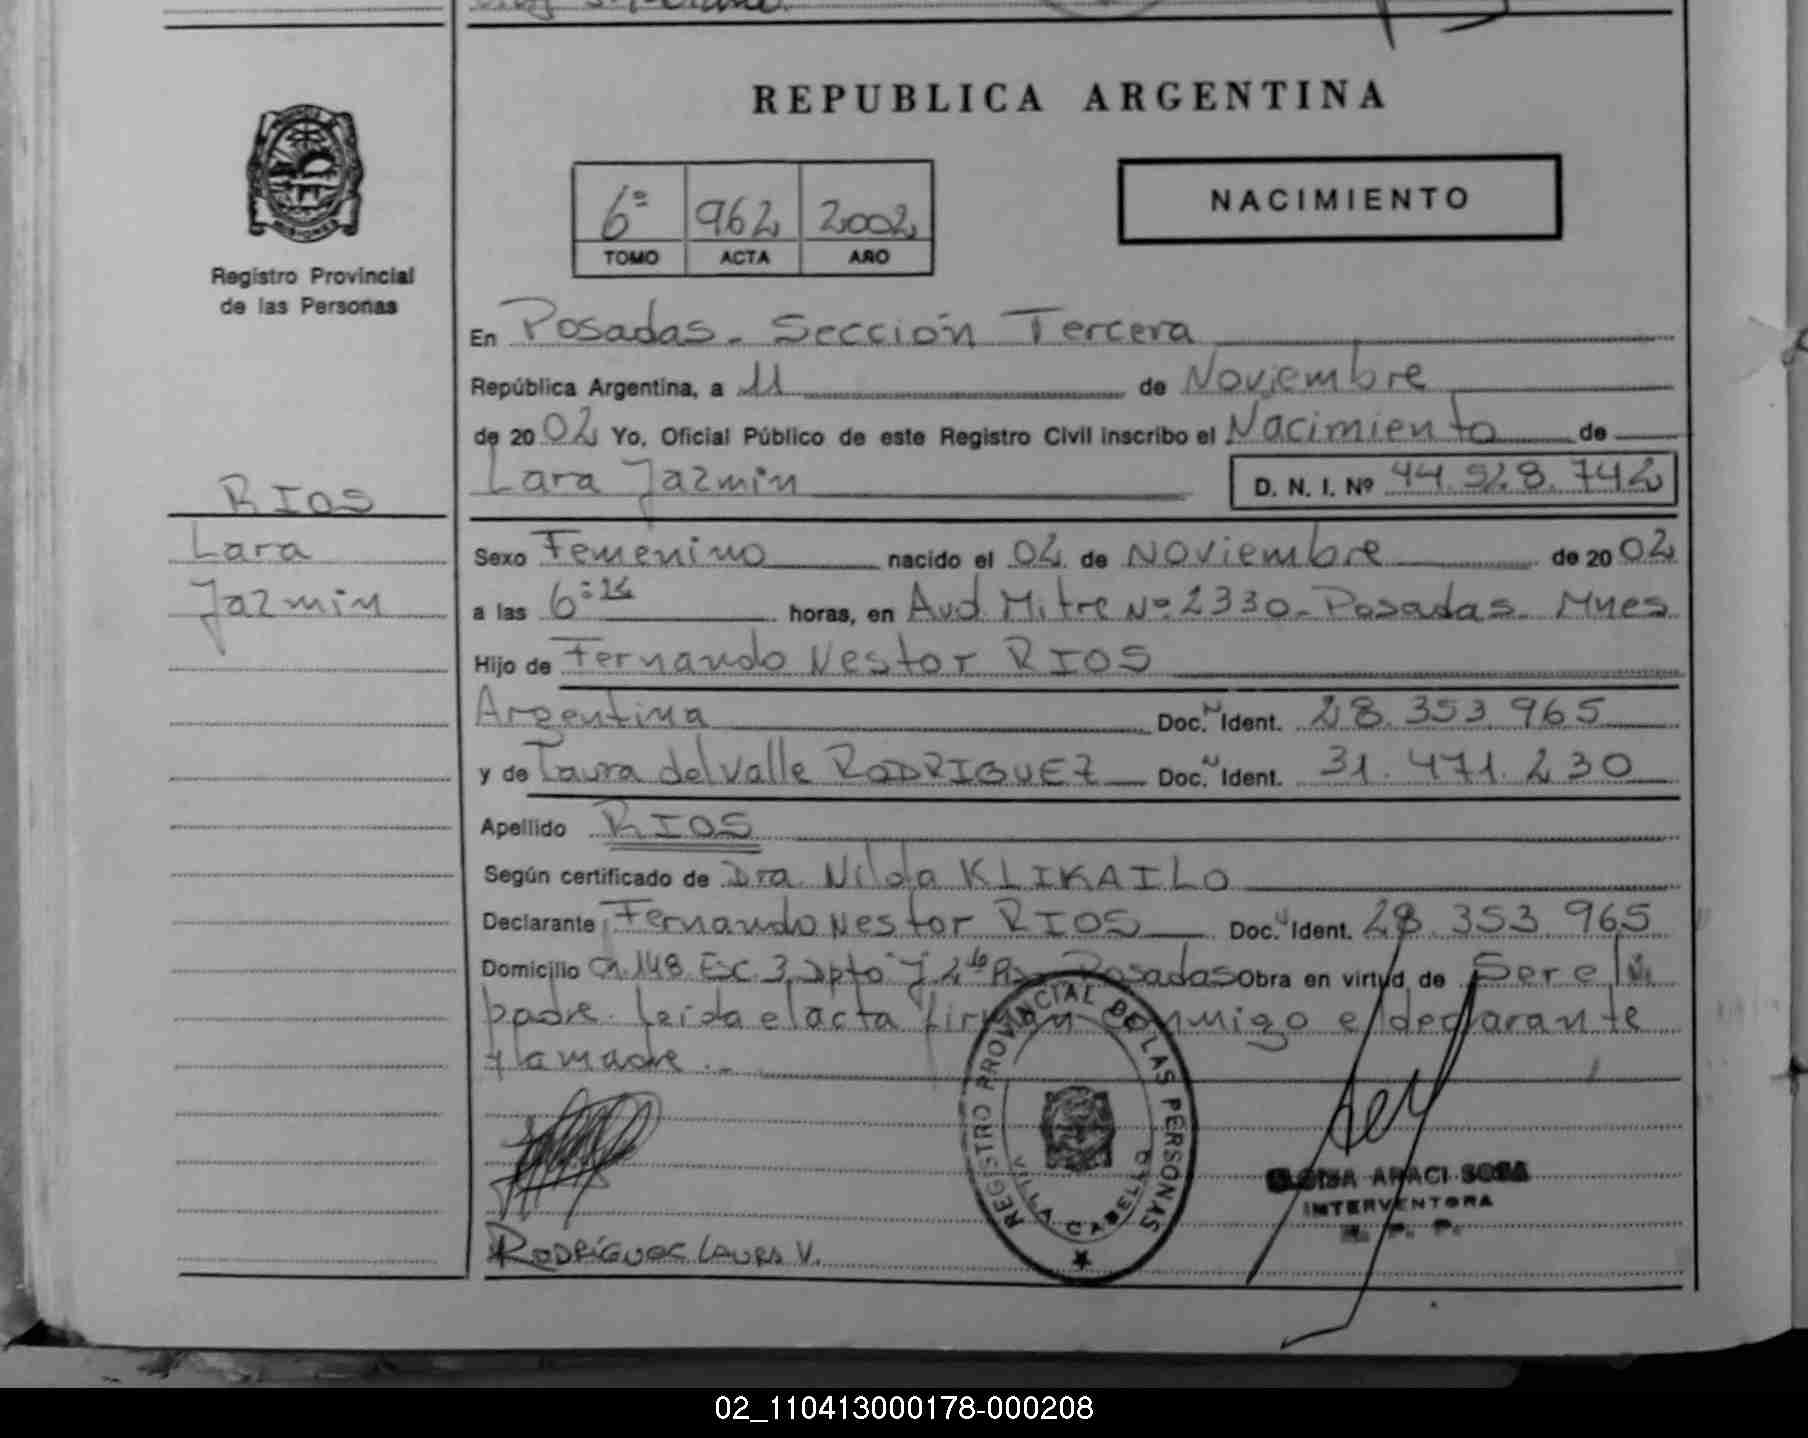 REPUBLICA ARGENTINA
MISIONES
Registro Provincial
de las Personas
6º 962 2002
TOMO ACTA AÑO
NACIMIENTO
En Posadas - Sección Tercera
República Argentina, a 11 de Noviembre
de 2002 Yo, Oficial Público de este Registro Civil inscribo el Nacimiento de
Lara Jazmin D. N. I. Nº 44.528.742
RIOS
Lara
Jazmin
Sexo Femenino nacido el 02 de Noviembre de 2002
a las 6: horas, en Avd. Mitre Nº 2330 - Posadas - Mnes
Hijo de Fernando Nestor RIOS
Argentina Doc. Ident. 28.353.965
y de Laura del Valle RODRIGUEZ Doc. Ident. 31.471.230
Apellido RIOS
Según certificado de Dra. Nilda KLIKAILO
Declarante Fernando Nestor RIOS Doc. Ident. 28.353.965
Domicilio Ch. 148 Esc. 3 Dpto J 2do Posadas Obra en virtud de Ser el
padre. Leida el acta firman conmigo el declarante
y la madre.-
REGISTRO PROVINCIAL DE LAS PERSONAS
VILLA CABELLO
ARACI SOSA
INTERVENTORA
R. P. P.
RODRÍGUEZ LAURA V.
02_110413000178-000208